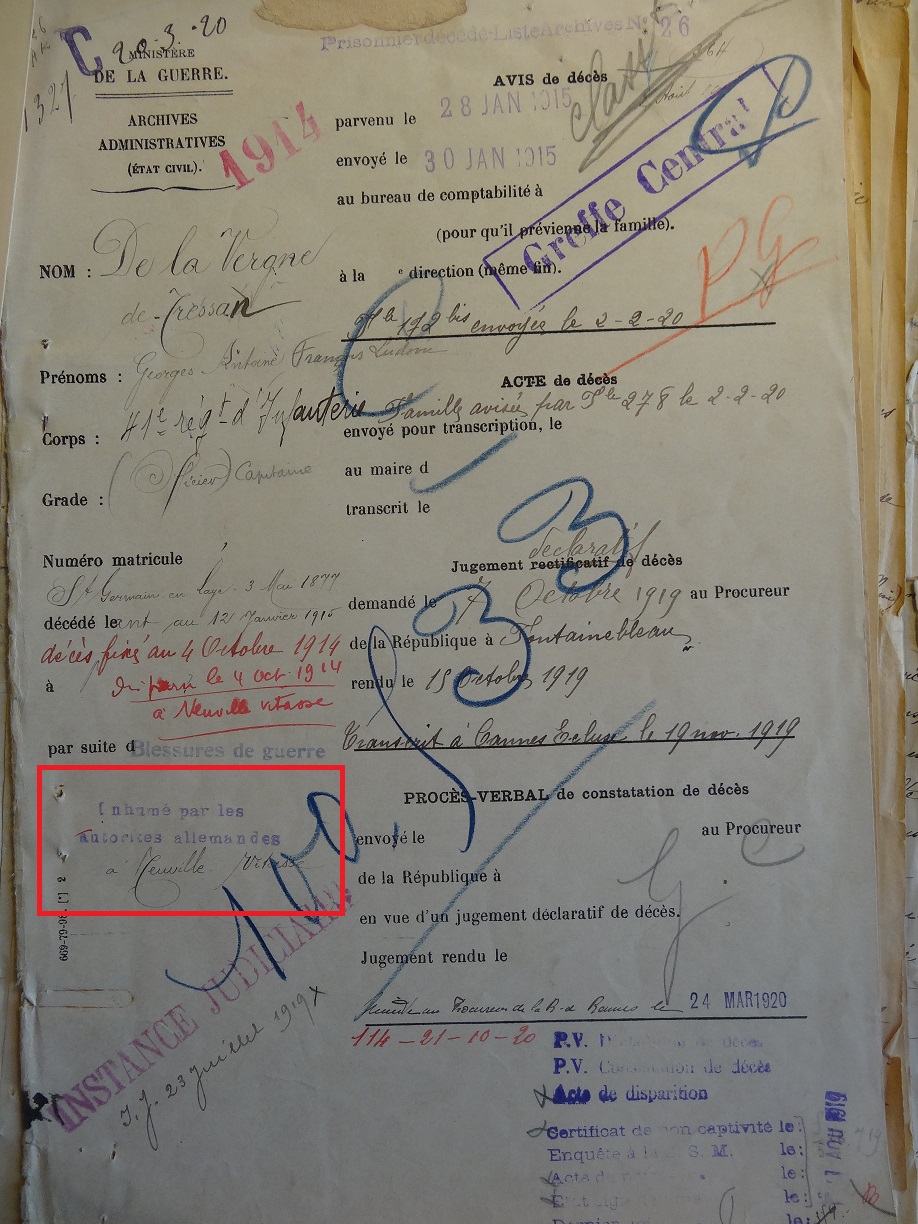 C 20-3-20
1327
MINISTÈRE
DE LA GUERRE.
ARCHIVES
ADMINISTRATIVES
(ÉTAT CIVIL).
1914
NOM : De la Vergne
de Tressan
Prénoms : Georges Antoine François Ludovic
Corps : 41e régt d'Infanterie
Grade : (Officier) Capitaine
Numéro matricule
St Germain en Laye 3 Mai 1877
décédé le ant au 12 Janvier 1915
décès fixé au 4 Octobre 1914
à Disparu le 4 oct. 1914
à Neuville vitasse
par suite d Blessures de guerre
Inhumé par les
autorites allemandes
à Neuville Vitasse
100
INSTANCE JUDICIAIRE
I.J. 23 juillet 1919 X
Prisonnier décédé-Liste Archives No 26
classé
AVIS de décès
parvenu le 28 JAN 1915
envoyé le 30 JAN 1915
au bureau de comptabilité à
(pour qu'il prévienne la famille).
Greffe Central
à la e direction (même fin).
PG
172 bis envoyée le 2-2-20
ACTE de décès
Famille avisée par 278 le 2-2-20
envoyé pour transcription, le
au maire d
transcrit le
déclaratif
Jugement rectificatif de décès
demandé le 7 Octobre 1919 au Procureur
de la République à Fontainebleau
rendu le 15 Octobre 1919
Transcrit à Cannes Ecluse le 19 nov. 1919
PROCÈS-VERBAL de constatation de décès
envoyé le au Procureur
de la République à
en vue d'un jugement déclaratif de décès.
Jugement rendu le
24 MAR 1920
114-21-10-20
P.V. de décès
P.V. Constatation de décès
Acte de disparition
Certificat de non captivité le :
Enquête à S. M. le :
Acte de le :
le :
Dernier le :